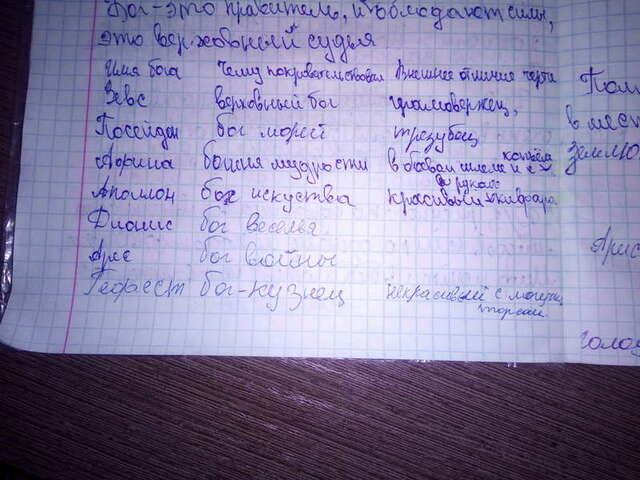 Бог - это правитель, и обладают силы,
это верховный судья
Имя бога Чему покровительствовал Внешнее отличие черты
Зевс верховный бог громовержец,
Посейдон бог морей трезубец
Афина богиня мудрости в боевом шлеме и с копьём
Аполлон бог искуства красивый с кифара в руках
Дионис бог веселья
Арес бог войны
Гефест бог-кузнец некрасивый с мощным торсом
Пом
в мест
Землю
Арис
голо